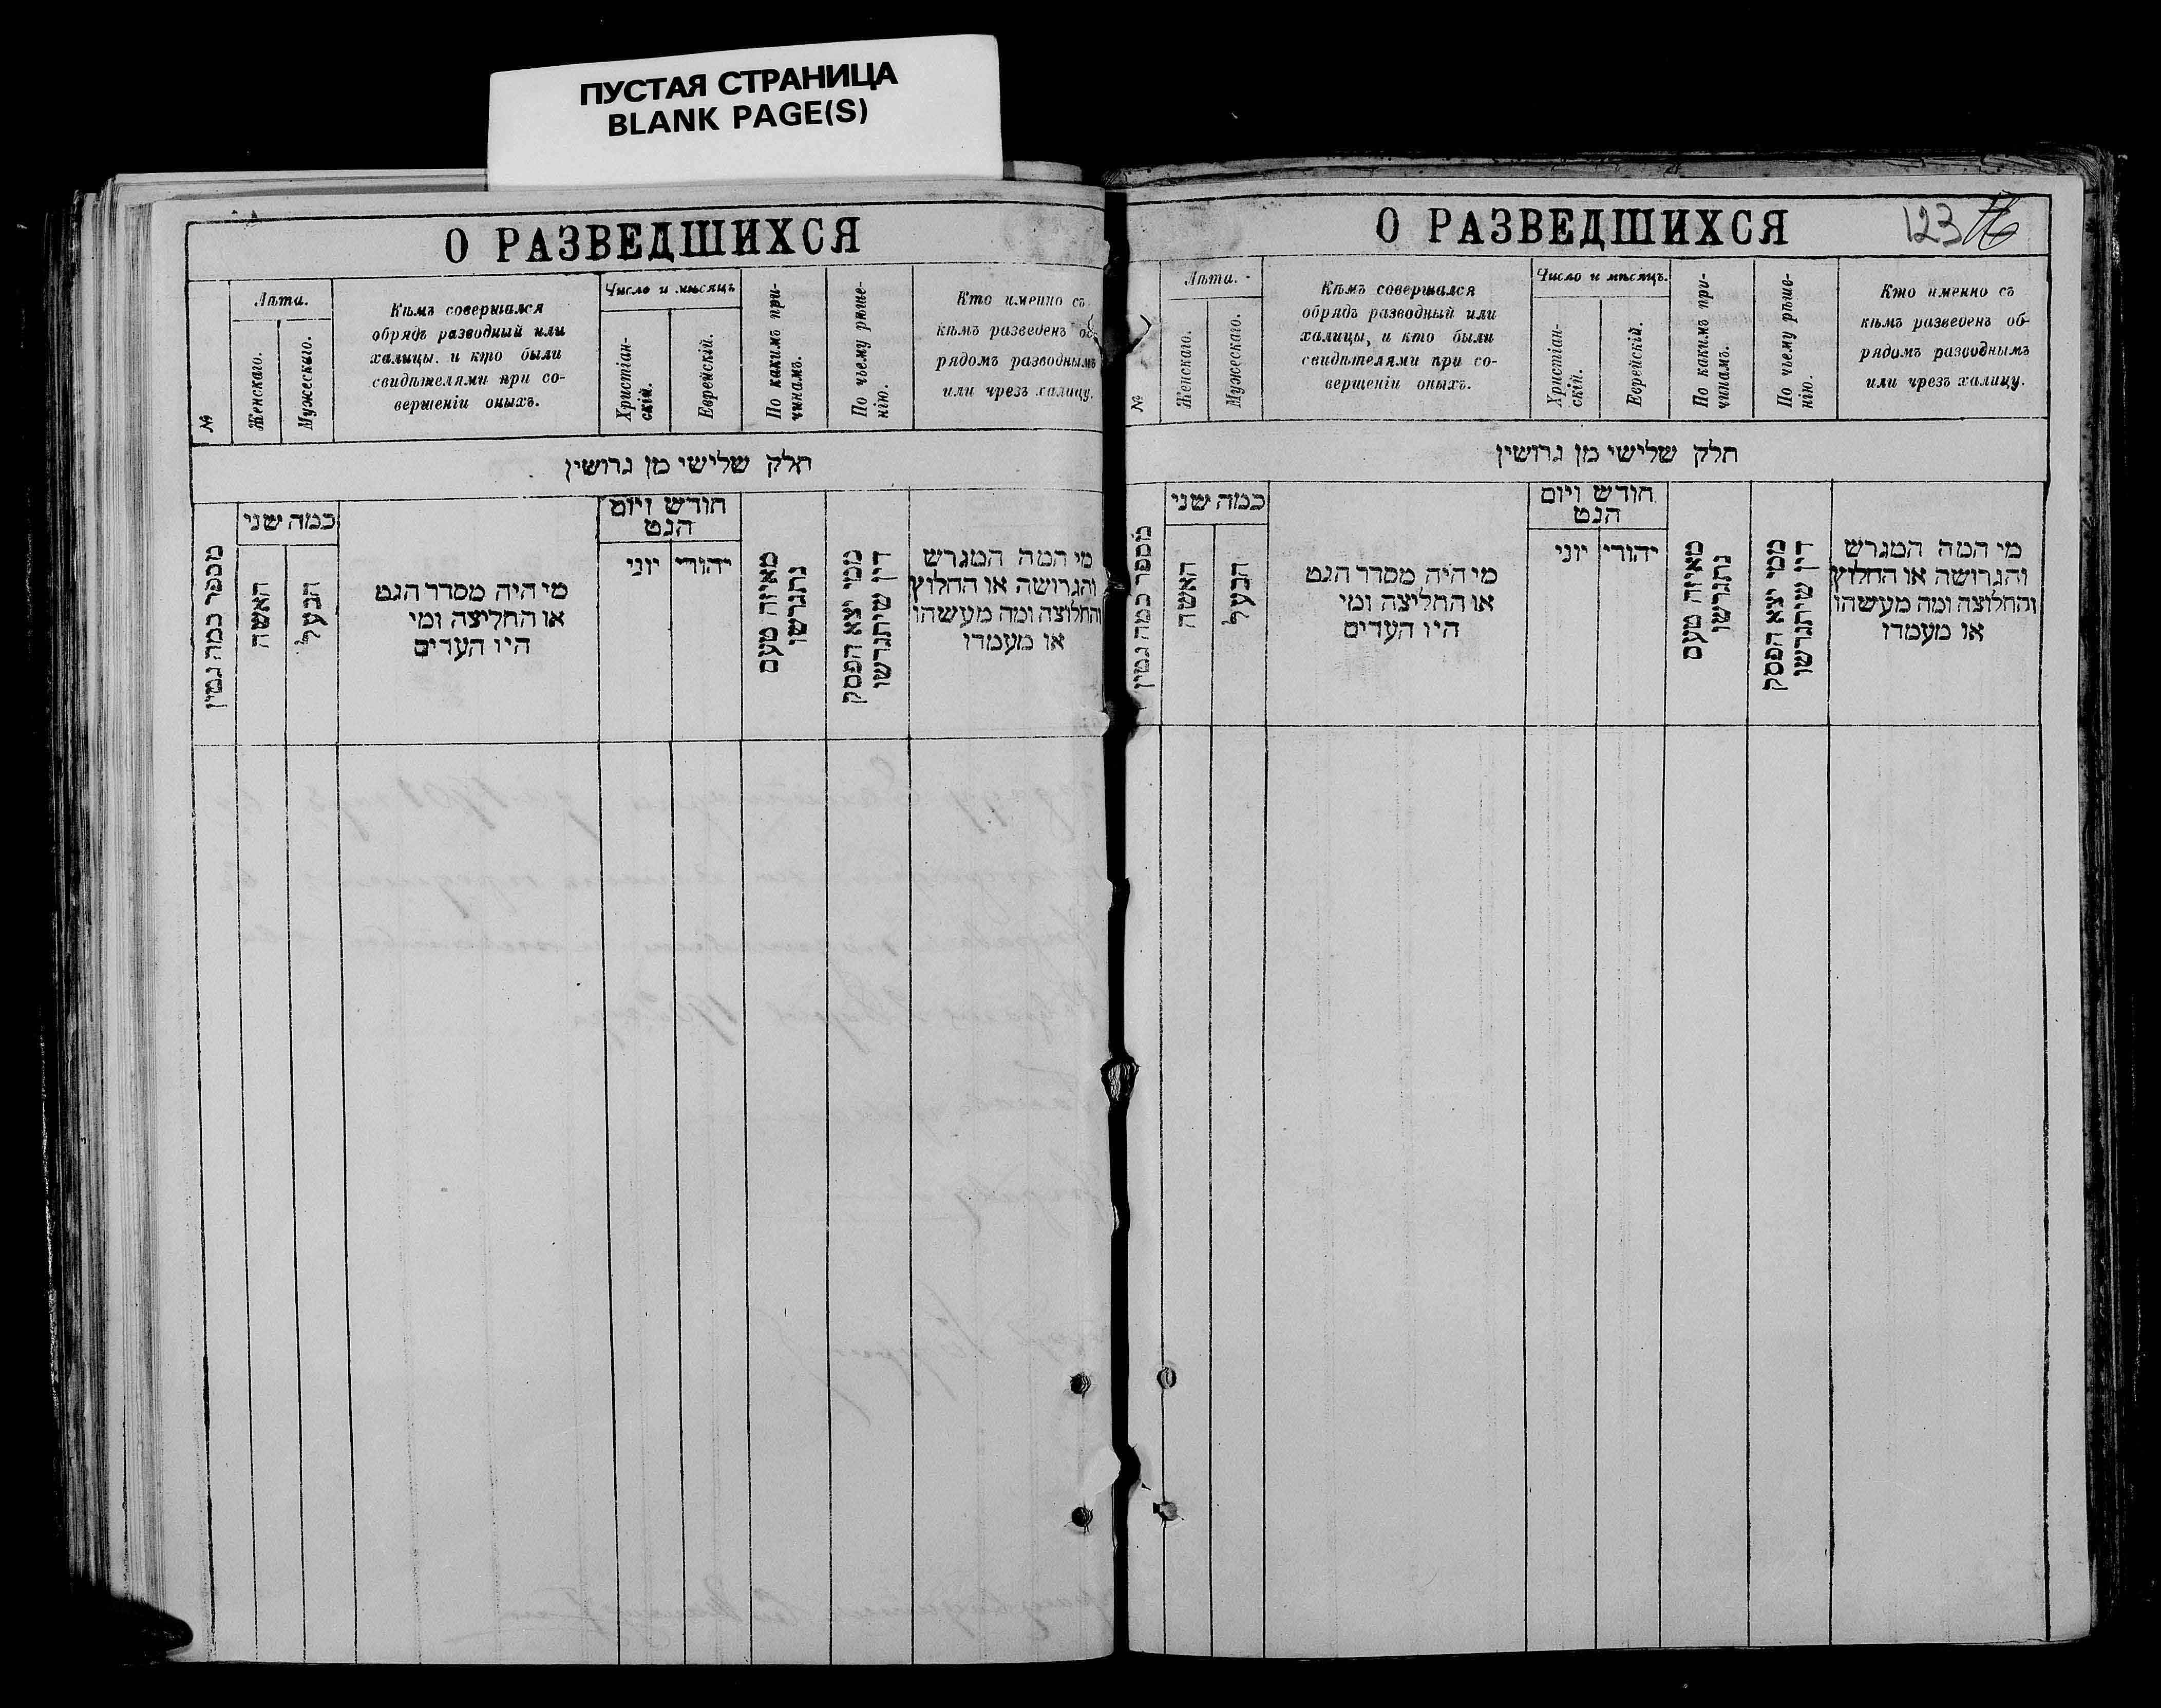 ПУСТАЯ СТРАНИЦА
BLANK PAGE(S)
О РАЗВЕДШИХСЯ
№
Лѣта.
Женскаго.
Мужескаго.
Кѣмъ совершался
обрядъ разводный или
халицы. и кто были
свидѣтелями при со-
вершеніи оныхъ.
Число и мѣсяцъ
Христіан-
скій.
Еврейскій.
По какимъ при-
чинамъ.
По чьему рѣше-
нію.
Кто именно съ
кѣмъ разведенъ об-
рядомъ разводнымъ
или чрезъ халицу.
חלק שלישי מן גרושין
מספר כמה גטין
כמה שני
האשה
הבעל
מי היה מסדר הגט
או החליצה ומי
היו העדים
חודש ויום
הגט
יהודי
יוני
מאיזה טעם
נתגרשו
ממי יצא הפסק
דין שיתגרשו
מי המה המגרש
והגרושה או החלוץ
והחלוצה ומה מעשהו
או מעמדו
О РАЗВЕДШИХСЯ
123
№
Лѣта.
Женскаго.
Мужескаго.
Кѣмъ совершался
обрядъ разводный или
халицы, и кто были
свидѣтелями при со-
вершеніи оныхъ.
Число и мѣсяцъ.
Христіан-
скій.
Еврейскій.
По какимъ при-
чинамъ.
По чьему рѣше-
нію.
Кто именно съ
кѣмъ разведенъ об-
рядомъ разводнымъ
или чрезъ халицу.
חלק שלישי מן גרושין
מספר כמה גטין
כמה שני
האשה
הבעל
מי היה מסדר הגט
או החליצה ומי
היו העדים
חודש ויום
הגט
יהודי
יוני
מאיזה טעם
נתגרשו
ממי יצא הפסק
דין שיתגרשו
מי המה המגרש
והגרושה או החלוץ
והחלוצה ומה מעשהו
או מעמדו